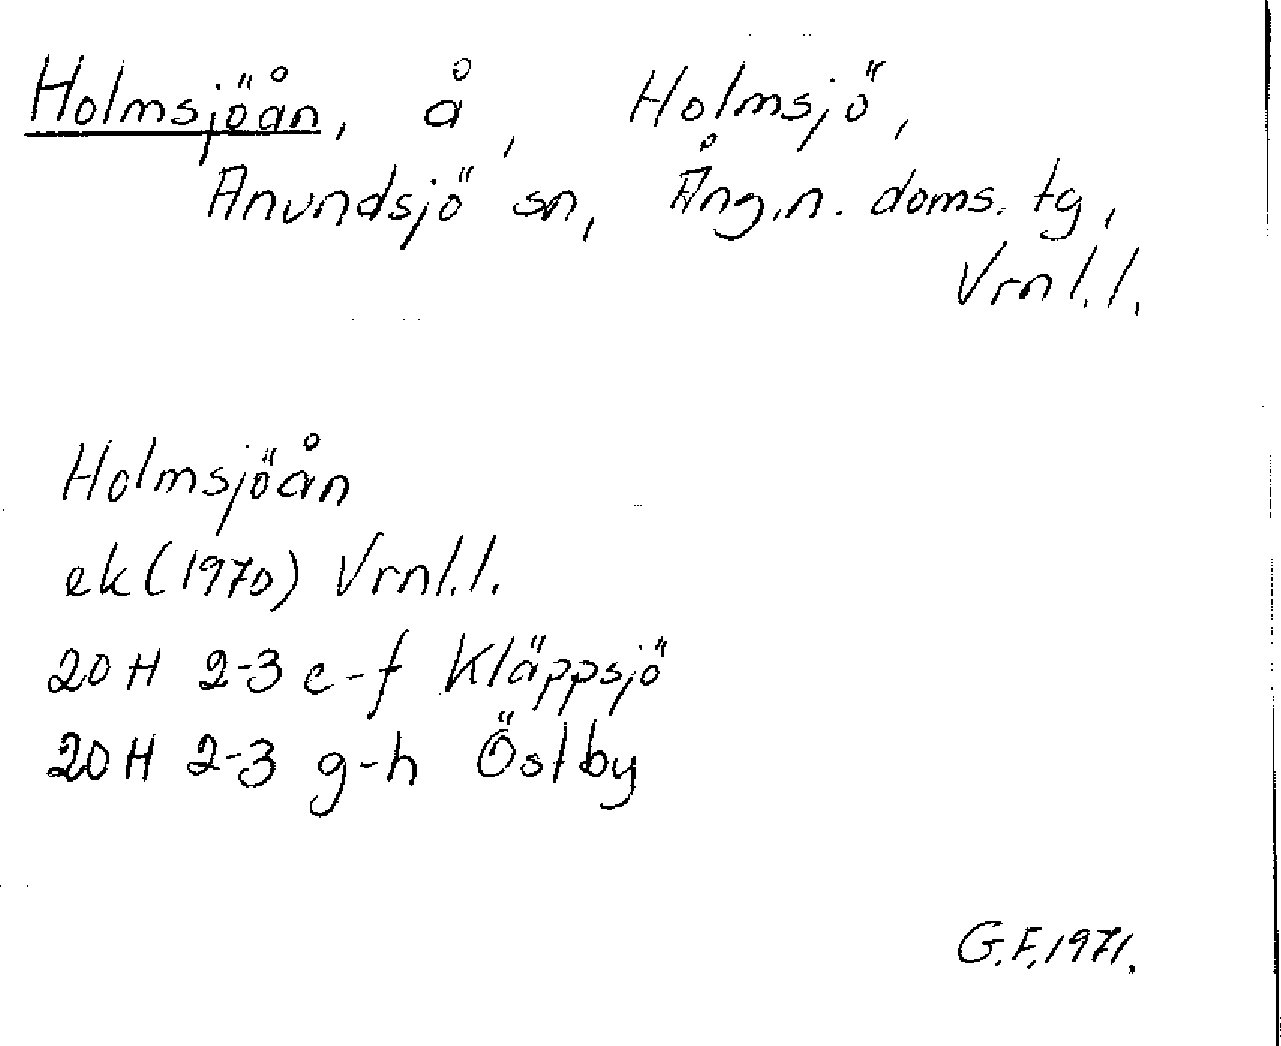 Holmsjöån, å, Holmsjö,
Anundsjö sn, Ång.n. doms. tg,
Vrnl.l.
Holmsjöån
ek (1970) Vrnl.l.
20 H 2-3 e-f Kläppsjö
20 H 2-3 g-h Östby
G.F, 1971.